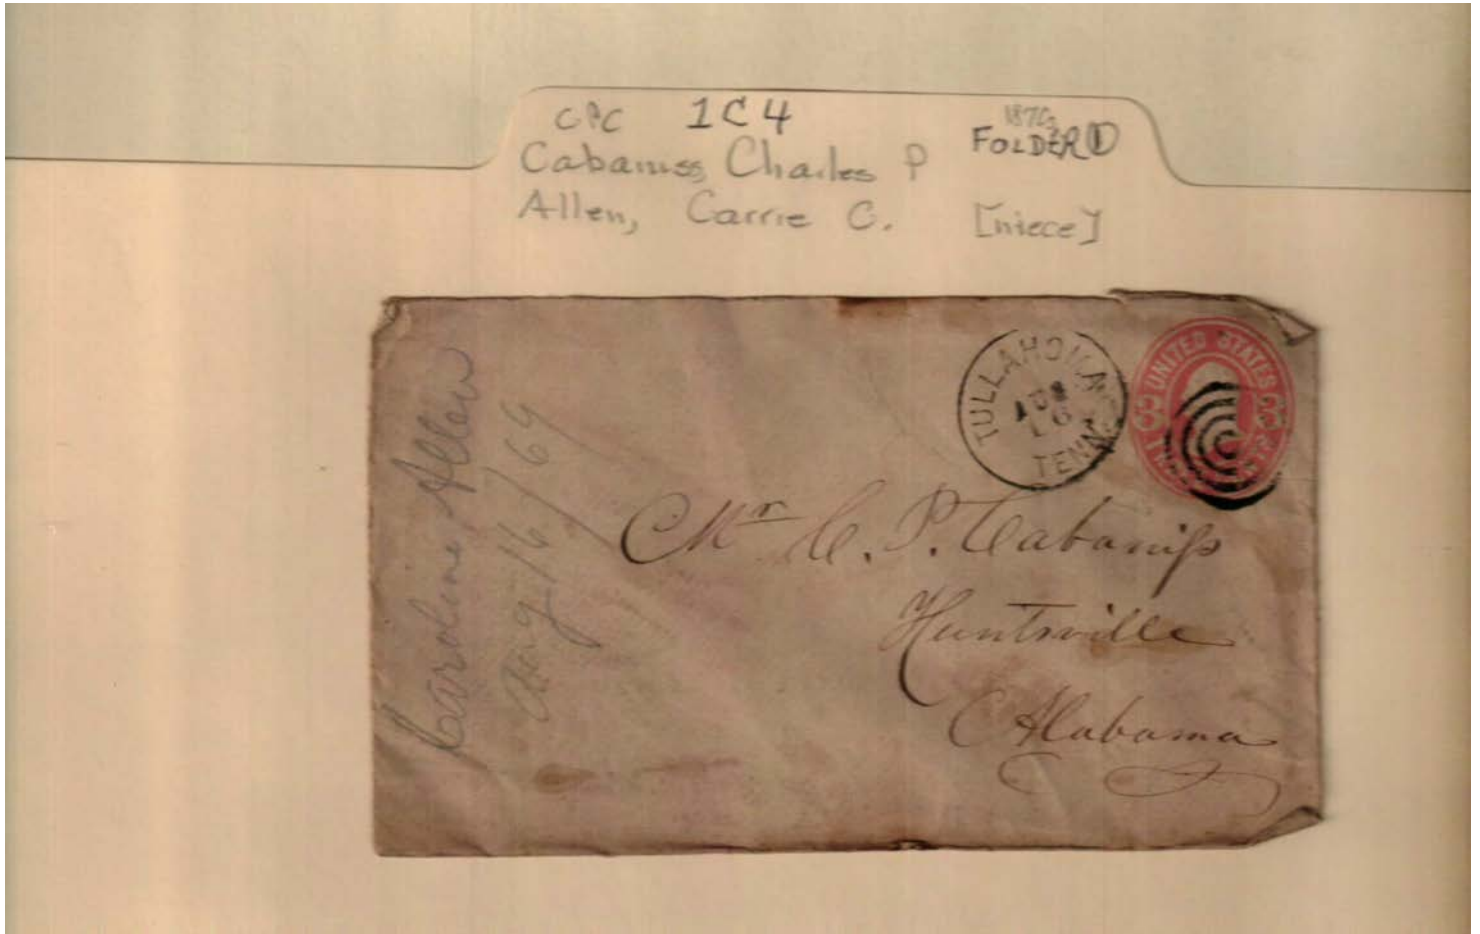 CPC 1C4
1870s
FOLDER ①
Cabaniss, Charles P
Allen, Carrie C. [niece]
Caroline Allen
Aug 16/69
TULLAHOMA
AUG
16
TENN.
UNITED STATES
3 3
Mr C. P. Cabaniss
Huntsville
Alabama